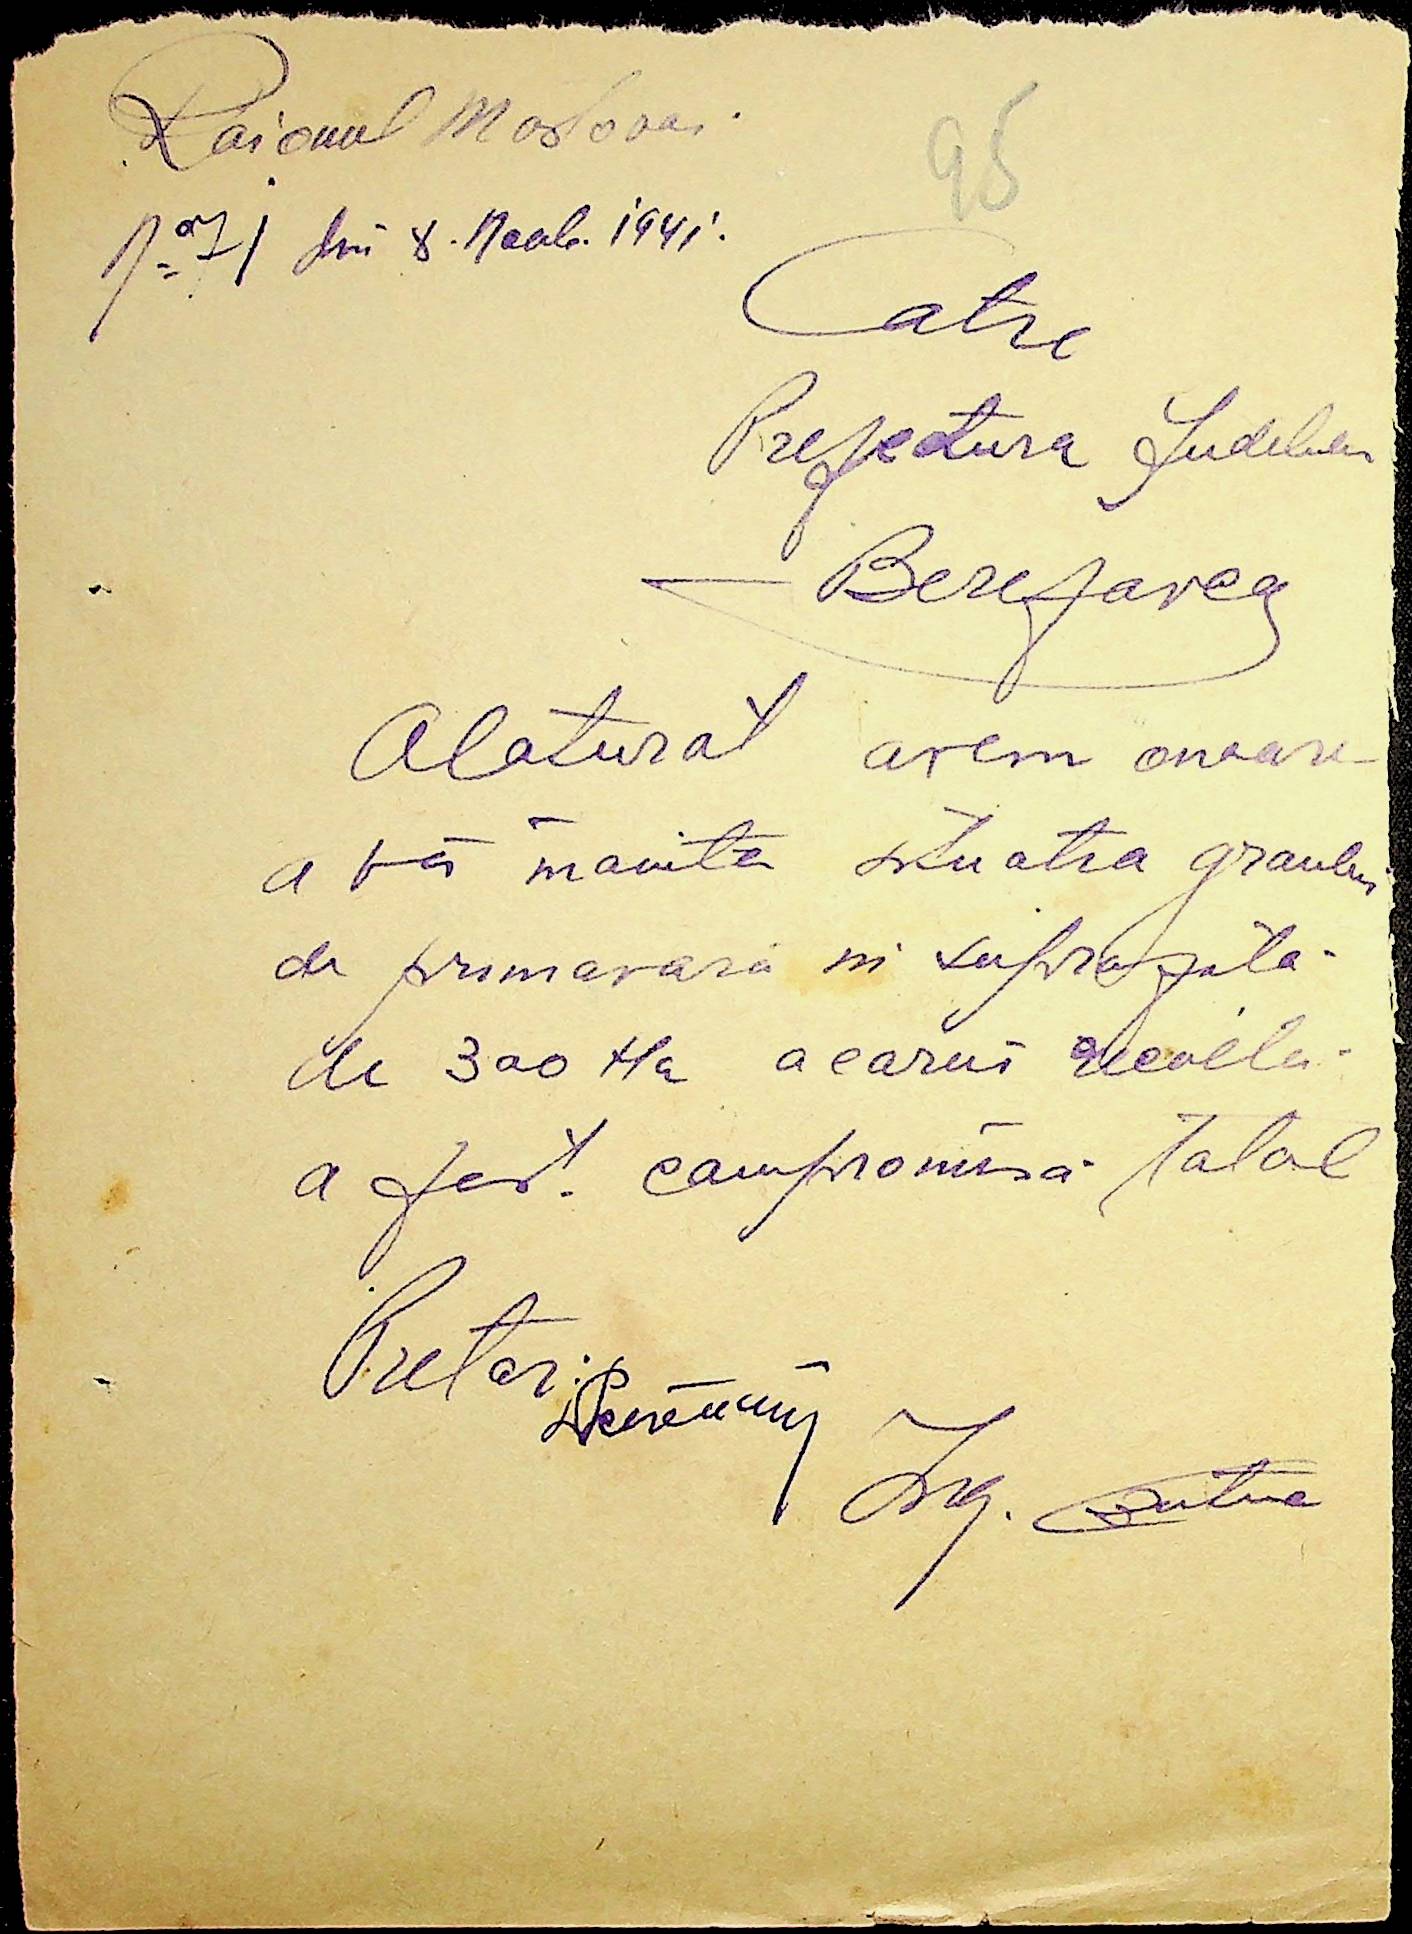 Raionul Mostovoi.
95
No 71 din 8. Noemb. 1941.
Catre
Prefectura Judetului
Berezovca
Alaturat avem onoare
a vă înainta situatia graului
de primavară in suprafata
de 300 Ha acarui recolta
a fost compromisă total
Pretor:
Ing. Butuc